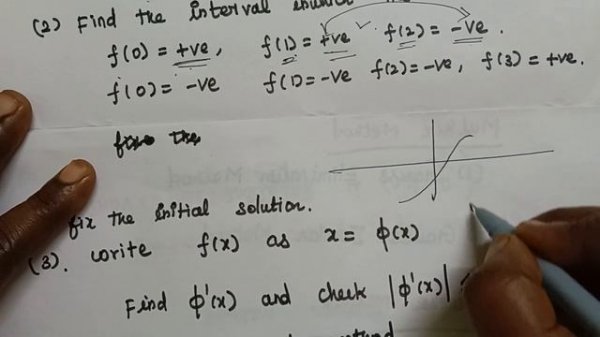 (2) Find the interval
f(0) = +ve, f(1) = +ve f(2) = -ve.
f(0) = -ve f(1) = -ve f(2) = -ve, f(3) = +ve.
fix the initial solution.
(3). Write f(x) as x = ϕ(x)
Find ϕ'(x) and check |ϕ'(x)|